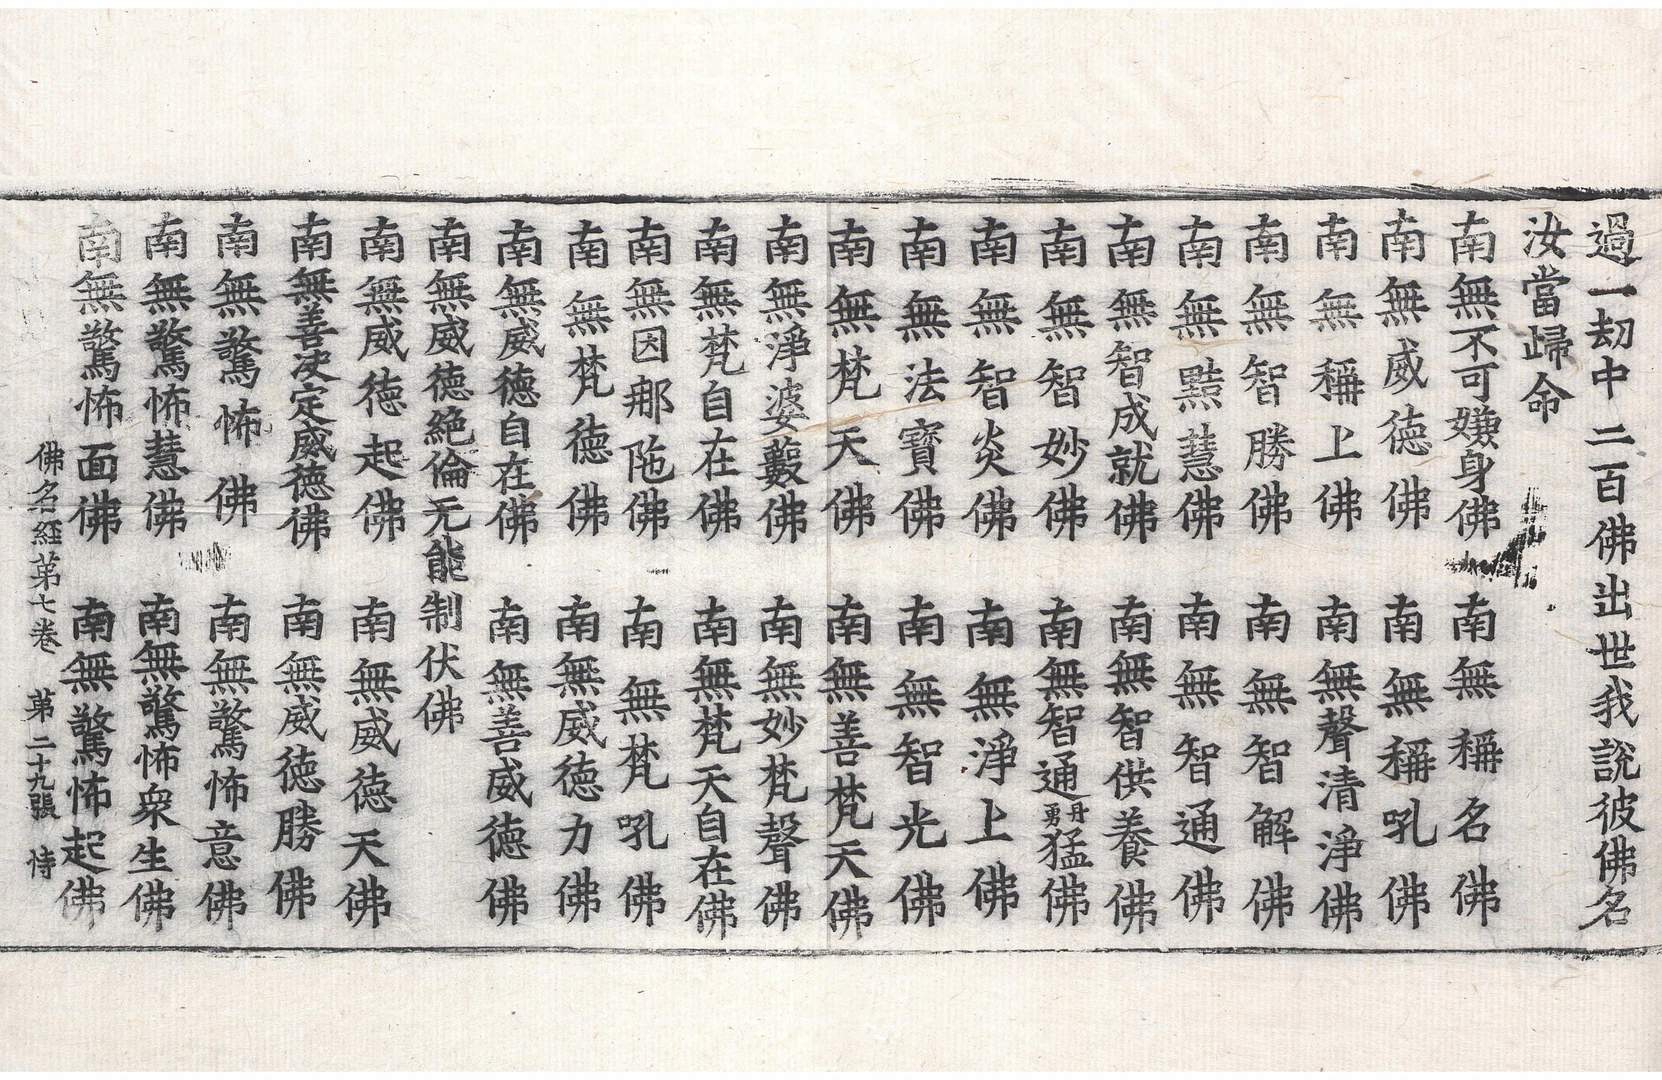 過一劫中二百佛出世我說彼佛名
汝當歸命
南無不可嫌身佛　南無稱名佛
南無威德佛　南無稱吼佛
南無稱上佛　南無聲清淨佛
南無智勝佛　南無智解佛
南無黠慧佛　南無智通佛
南無智成就佛　南無智供養佛
南無智妙佛　南無智通丹勇猛佛
南無智炎佛　南無淨上佛
南無法寶佛　南無智光佛
南無梵天佛　南無善梵天佛
南無淨婆藪佛　南無妙梵聲佛
南無梵自在佛　南無梵天自在佛
南無因那陁佛　南無梵吼佛
南無梵德佛　南無威德力佛
南無威德自在佛　南無善威德佛
南無威德絕倫无能制伏佛
南無威德起佛　南無威德天佛
南無善決定威德佛　南無威德勝佛
南無驚怖佛　南無驚怖意佛
南無驚怖慧佛　南無驚怖衆生佛
南無驚怖面佛　南無驚怖起佛
佛名經第七卷　第二十九張　恃